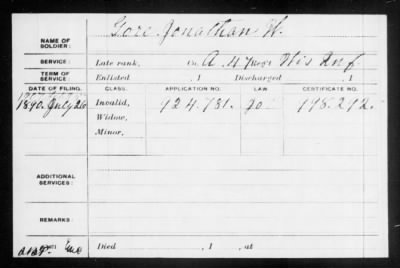 NAME OF SOLDIER: Gore, Jonathan W.
SERVICE: Late rank, Co. A. 47 Reg't Wis Inf
TERM OF SERVICE Enlisted , 1 Discharged , 1
DATE OF FILING. CLASS. APPLICATION NO. LAW CERTIFICATE NO.
1890. July 26 Invalid, 924.781.
Widow,
Minor,
ADDITIONAL SERVICES:
REMARKS:
Died , 1 , at